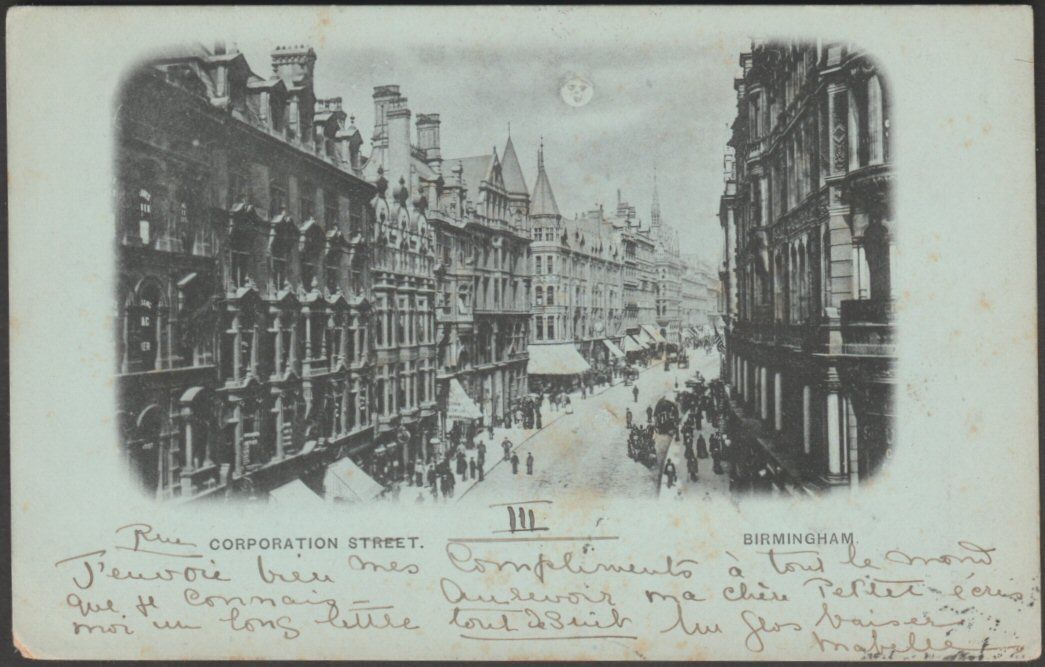 III
Rue CORPORATION STREET. BIRMINGHAM.
J'envoie bien mes Compliments à tout le mond
que je connais - Aurevoir ma chère Petite écris
moi un long lettre tout de suit Un gros baiser
Mabelle